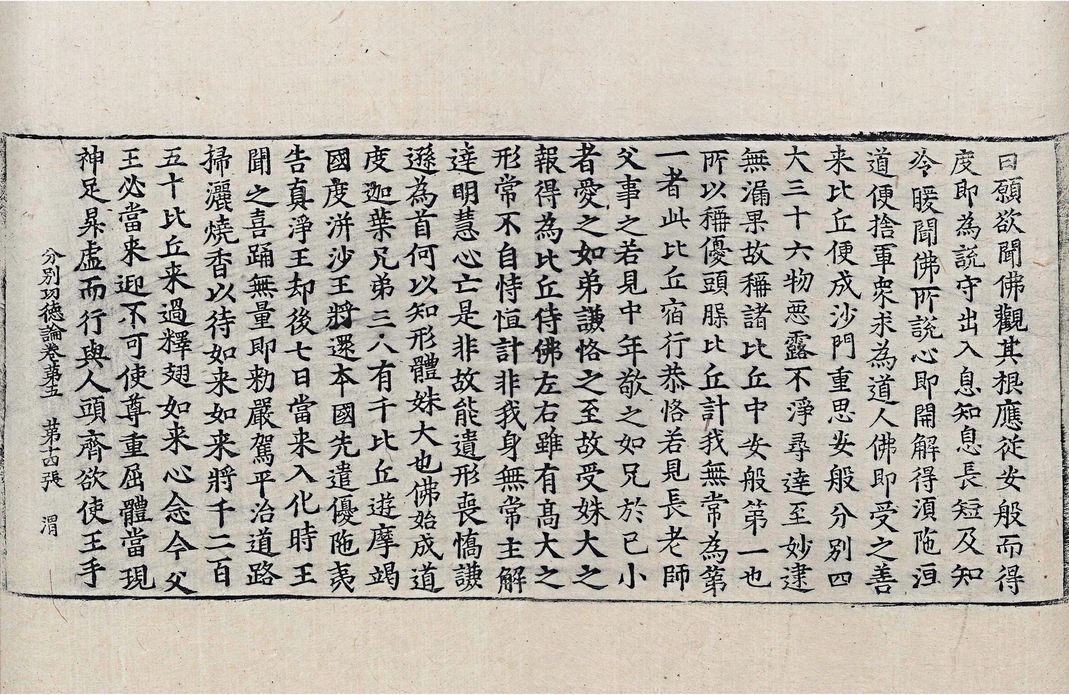 曰願欲聞佛觀其根應從安般而得
度即為說守出入息知息長短及知
冷暖聞佛所說心即開解得須陁洹
道便捨軍衆求為道人佛即受之善
来比丘便成沙門重思安般分別四
大三十六物惡露不淨尋達至妙逮
無漏果故稱諸比丘中安般第一也
所以稱優頭脲比丘計我無常為第
一者此比丘宿行恭恪若見長老師
父事之若見中年敬之如兄於己小
者愛之如弟謙恪之至故受姝大之
報得為比丘侍佛左右雖有高大之
形常不自恃恒計非我身無常主解
達明慧心亡是非故能遺形喪憍謙
遜為首何以知形體姝大也佛始成道
度迦葉兄弟三人有千比丘遊摩竭
國度洴沙王將還本國先遣優陁夷
告真淨王却後七日當来入化時王
聞之喜踊無量即勑嚴駕平治道路
掃灑燒香以待如来如来將千二百
五十比丘来過釋翅如来心念今父
王必當来迎不可使尊重屈體當現
神足昇虛而行與人頭齊欲使王手
分別功德論卷第五　第十四張　渭